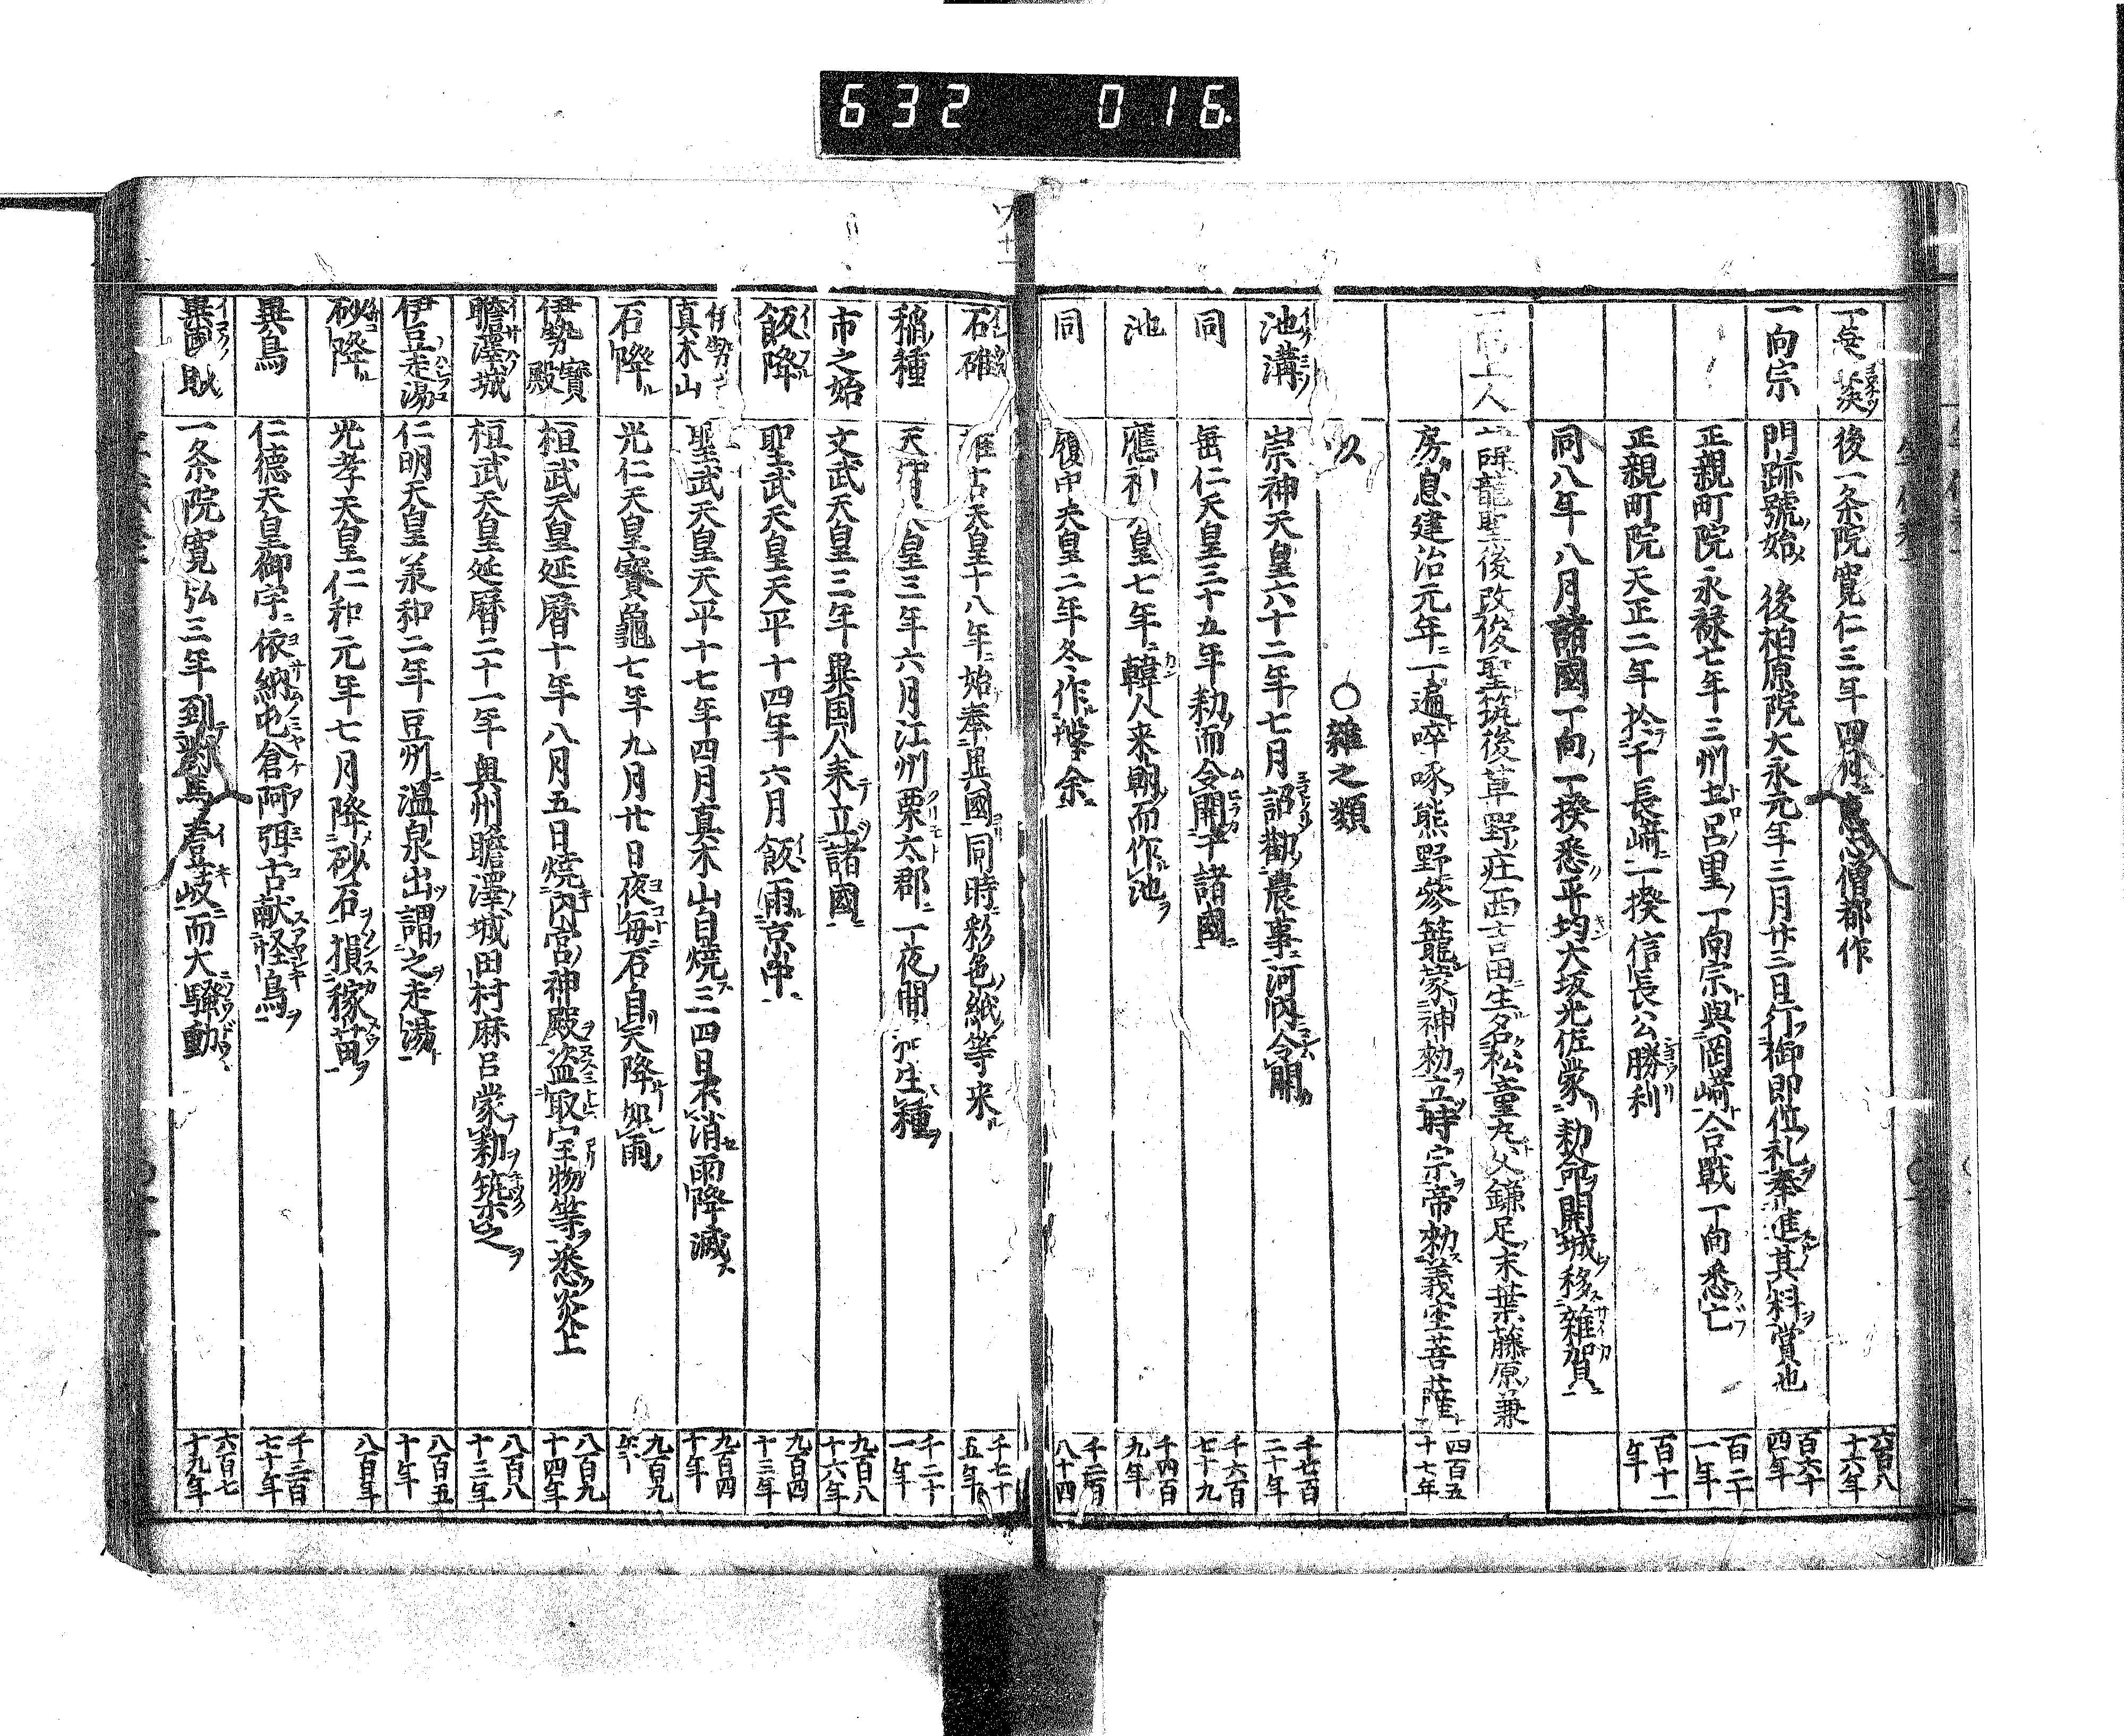 632 016
後一条院寛仁三年四月恵心僧都作 六百八十六年
一向宗 門跡號始 後柏原院大永元年三月廿二日行御即位礼奉進其料賞也 百六十四年
正親町院永禄七年三州土呂里一向宗與岡﨑合戰一向悉亡 百二十一年
正親町院天正二年於千長﨑一揆信長公勝利 百十一年
同八年八月諸國一向一揆悉平均大坂光佐蒙勅命開城移雜賀
上人 諱龍聖後改俊聖筑後草野庄西吉田生名松童丸父鎌足末葉藤原兼
房息建治元年一遍啐啄熊野參籠蒙神勅立時宗帝勅義空菩薩 四百五十七年
○雜之類
池溝 崇神天皇六十二年七月詔勸農事河内令開 千七百二十年
同 垂仁天皇三十五年勅而令開千諸國 千六百七十九
池 應神天皇七年韓人来朝而作池 千四百九年
同 履中天皇二年冬作磐余 千二百八十四
石碓 推古天皇十八年始奉異國同時彩色紙等来 千七十五年
稲種 天皇三年六月江州栗太郡一夜間生種 千二十一年
市之始 文武天皇三年異国人来立諸國 九百八十六年
飯降 聖武天皇天平十四年六月飯雨京中 九百四十三年
伊勢真木山 聖武天皇天平十七年四月真木山自燒三四日未消雨降滅 九百四十年
石降 光仁天皇寶龜七年九月廿日夜毎石自天降如雨 九百九年
伊勢寶殿 桓武天皇延暦十年八月五日燒内宮神殿盗取宝物等悉炎上 八百九十四年
膽澤城 桓武天皇延暦二十一年奥州膽澤城田村麻呂蒙勅築之 八百八十三年
伊豆走湯 仁明天皇羕和二年豆州温泉出謂之走湯 八百五十年
砂降 光孝天皇仁和元年七月降砂石損稼苗 八百年
異鳥 仁德天皇御宇依納屯倉阿弭古献怪鳥 千三百七十年
異國賊 一条院寛弘三年到對馬壹岐而大騷動 六百七十九年